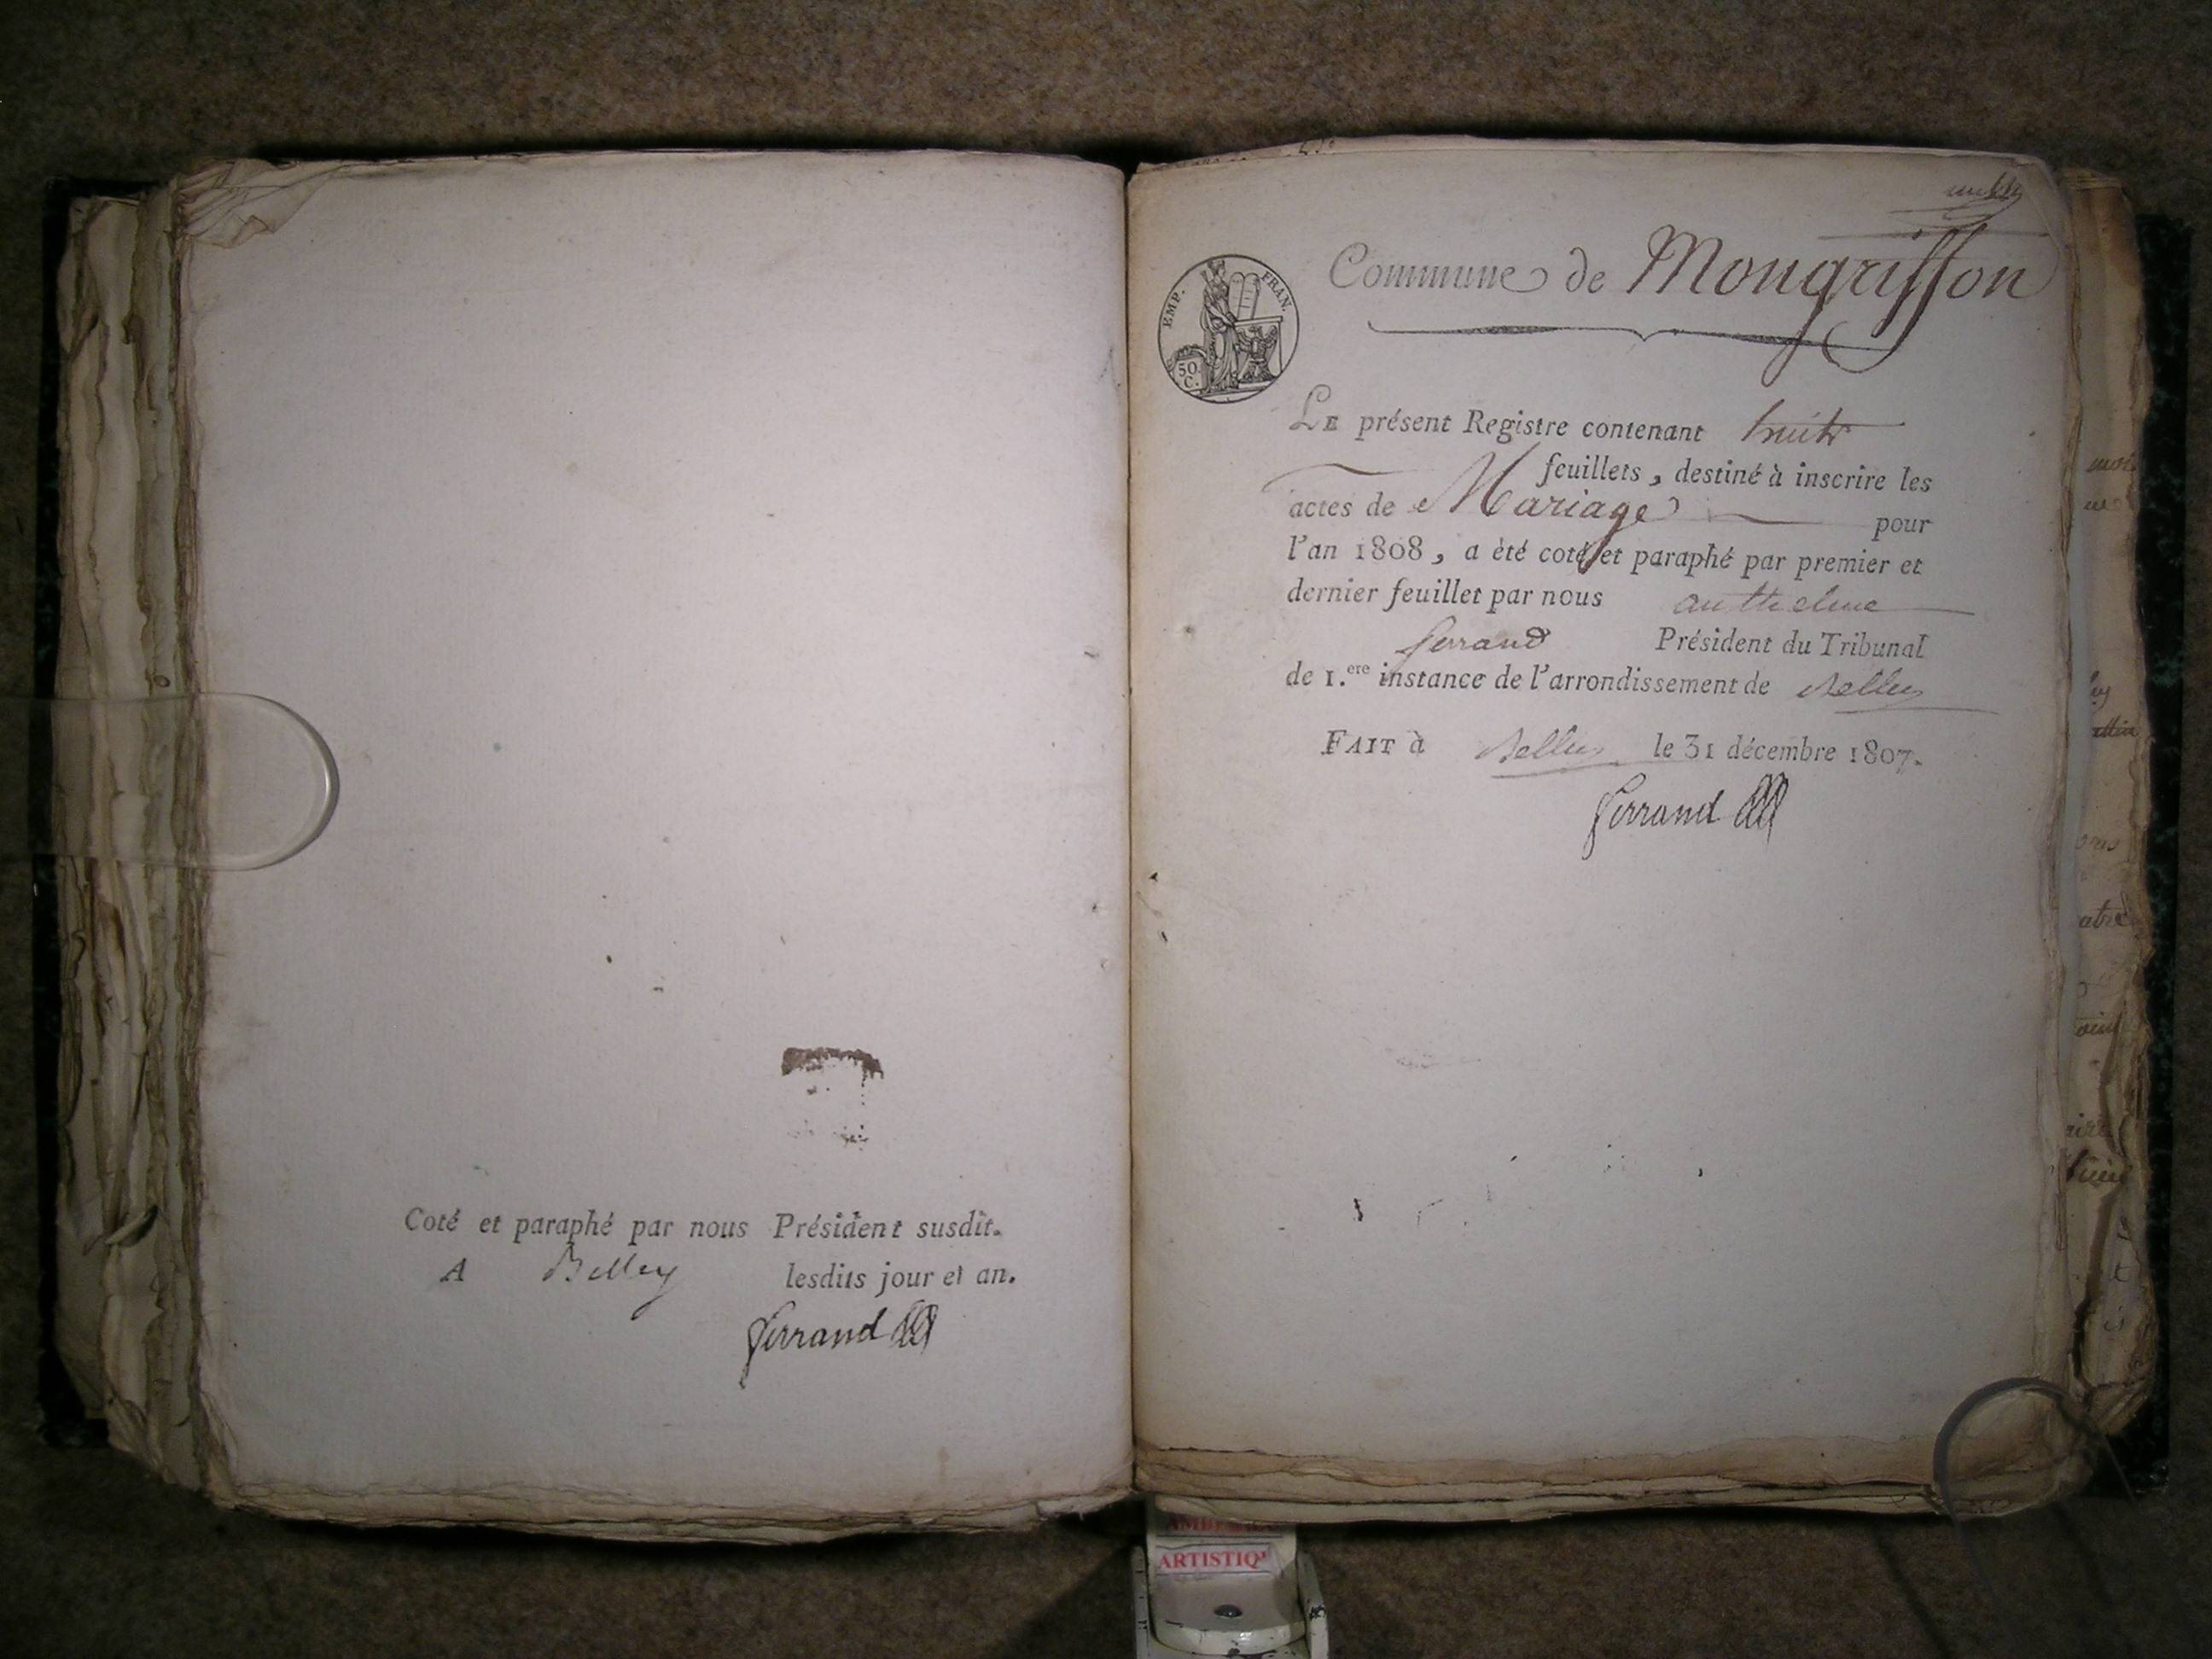 Coté et paraphé par nous Président susdit.
A Belley lesdits jour et an.
Ferrand
EMP. FRAN.
50
C.
Commune de Mongriffon
LE présent Registre contenant huit
feuillets, destiné à inscrire les
actes de Mariage pour
l'an 1808, a été coté et paraphé par premier et
dernier feuillet par nous anthelme
ferrand Président du Tribunal
de 1.ere instance de l'arrondissement de Belley
FAIT à Belley le 31 décembre 1807.
Ferrand
ARTISTIQ